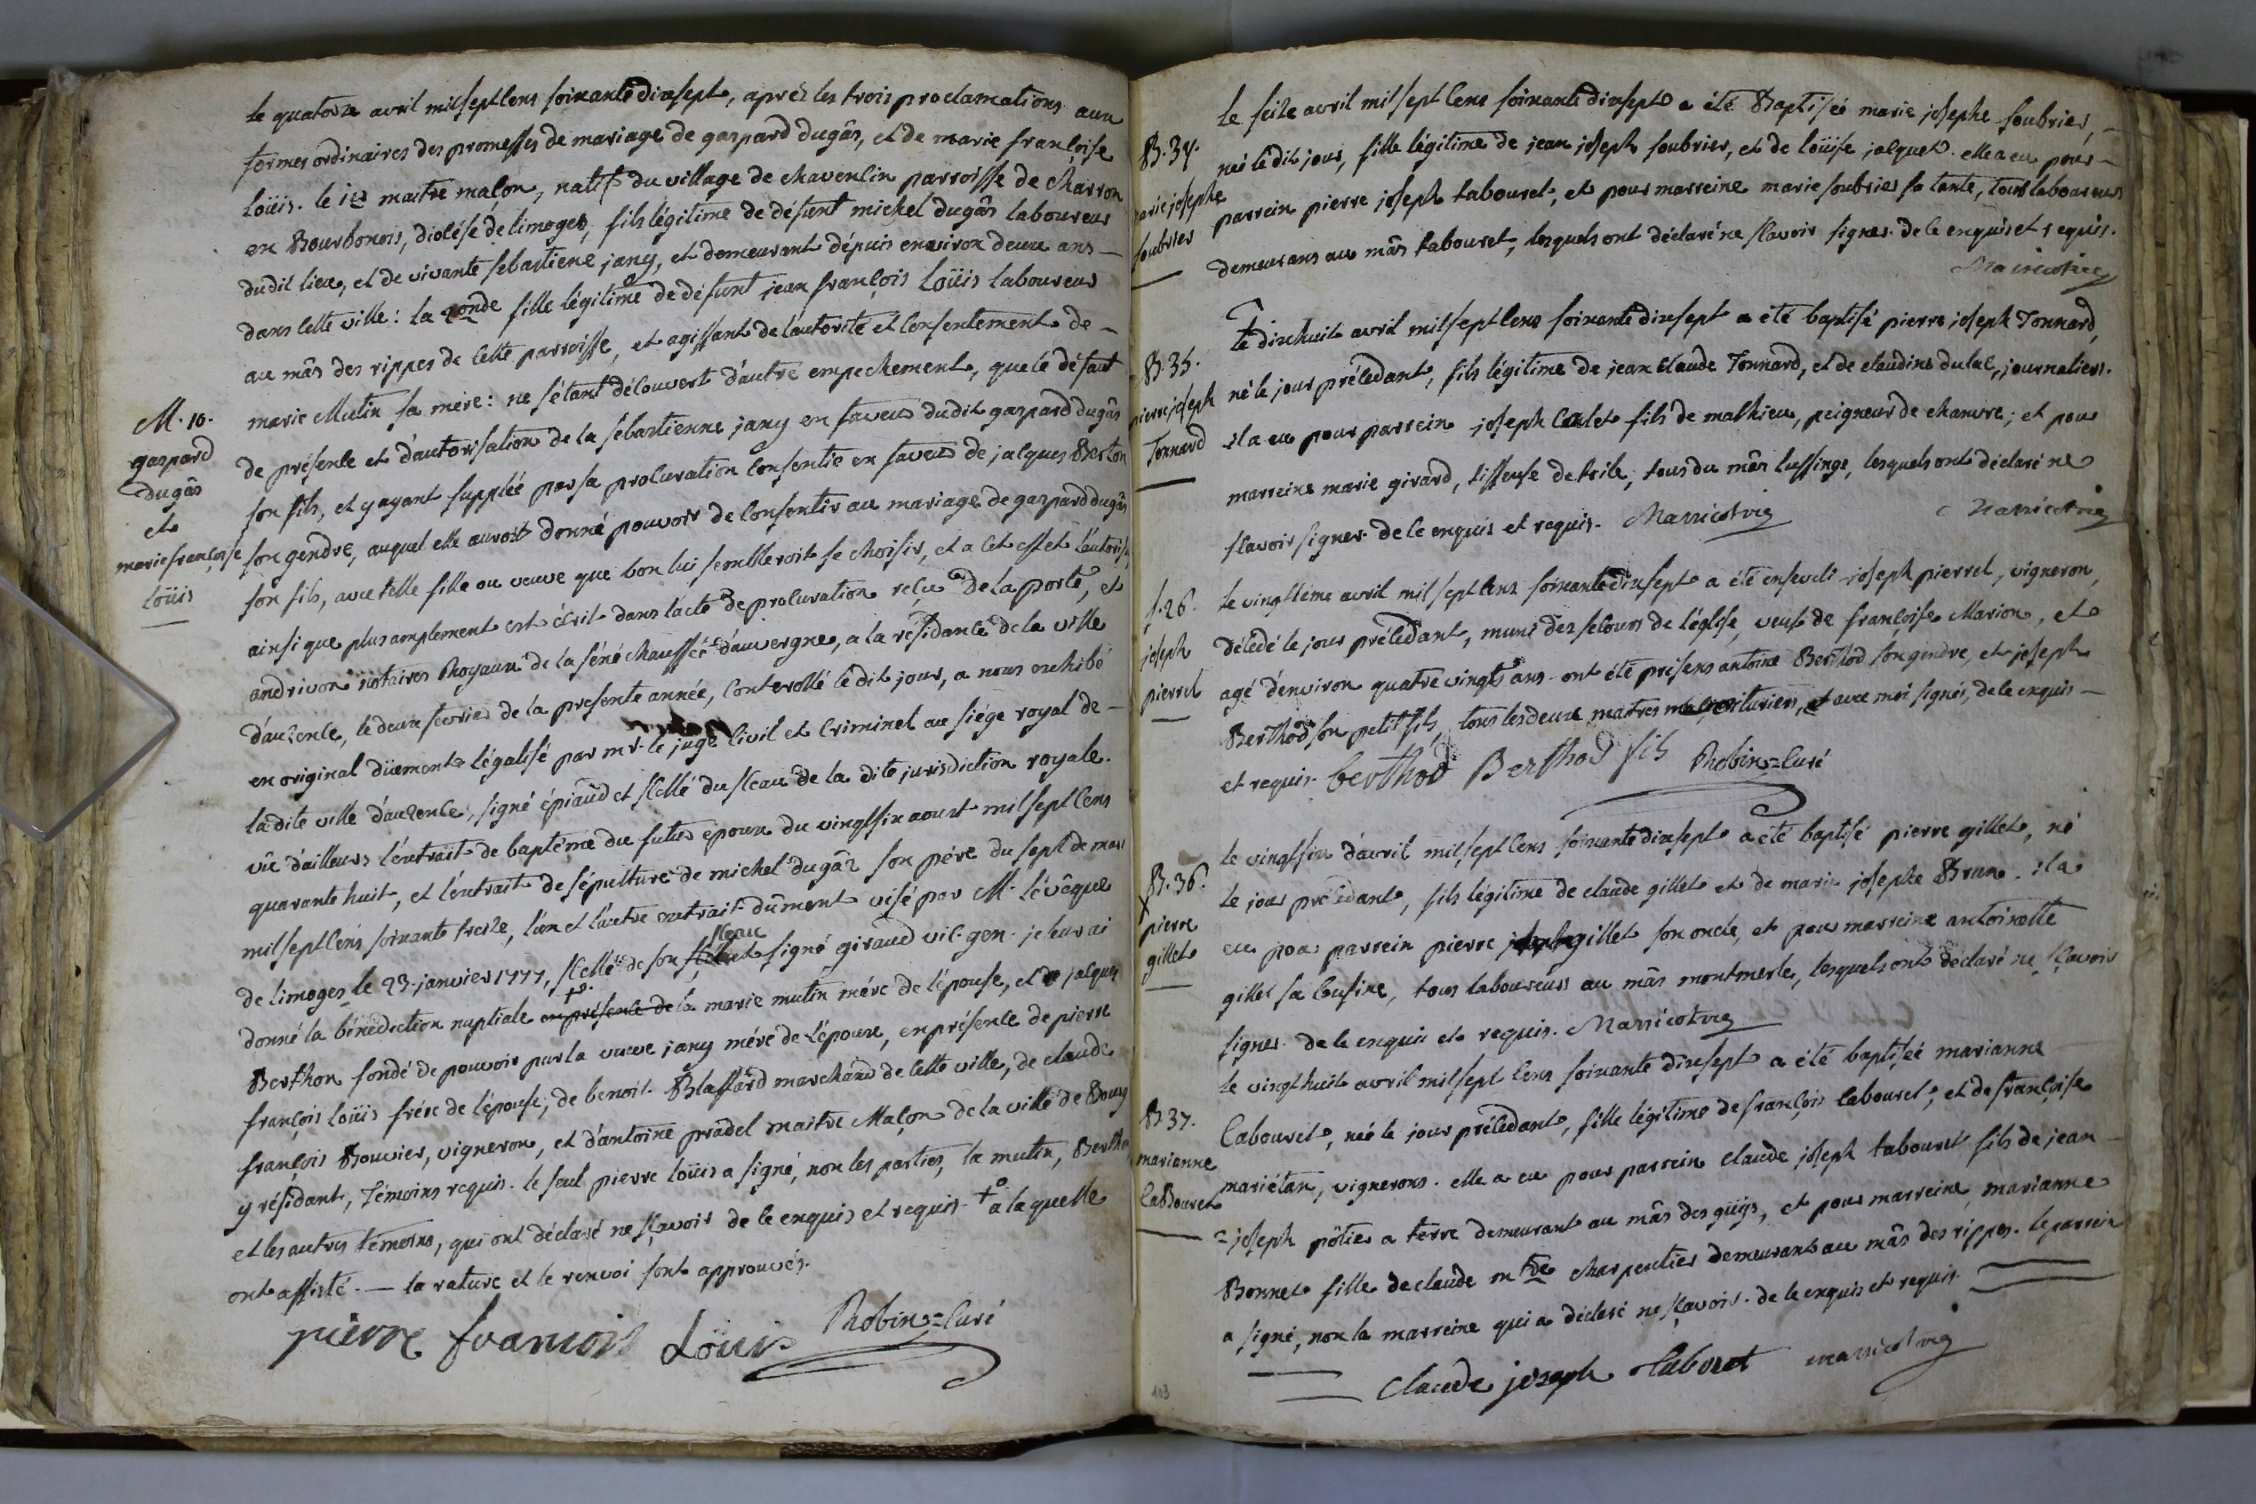 le quatorze avril mil sept cens soixante dix sept, après les trois proclamations aux
termes ordinaires des promesses de mariage de gaspard dugâs, et de marie françoise
Loüis. le 1er maître maçon, natif du village de chavenlin parroisse de charron
en Bourbonois, diocése de limoges, fils légitime de défunt michel dugâs laboureur
dudit lieu, et de vivante sebastiene jany, et demeurant dépuis environ deux ans
dans cette ville: la 2onde fille légitime de défunt jean françois Loüis laboureur
au mâs des rippes de cette parroisse, et agissant de l'autorité et consentement de
marie Mutin sa mére: ne s'étant découvert d'autre empechement, que le défaut
de présence et d'autorisation de la sébastienne jany en faveur dudit gaspard dugâs
son fils, et y ayant suppléé par sa procuration consentie en faveur de jacques Berton
son gendre, auquel elle auroit donné pouvoir de consentir au mariage de gaspard dugâs
son fils, avec telle fille ou veuve que bon lui sembleroit se choisir, et a cet effet l'autoriser
ainsi que plus amplement est écrit dans l'acte de procuration reçu de la porte, et
andrivon notaires Royaux de la sénéchaussée d'auvergne, a la résidance de la ville
d'auzence, le deux fevrier de la presente année, controllé le dit jour, a nous exhibé
en original düement légalisé par mr. le juge civil et criminel au siége royal de
la dite ville d'auzence, signé épiaud et scellé du sceau de la dite jurisdiction royale.
vû d'ailleurs l'extrait de baptéme du futur epoux du vingt six aoust mil sept cens
quarante huit, et l'extrait de sépulture de michel dugâs son pére du sept de mars
mil sept cens soixante treize, l'un et l'autre extrait dûment visé par M. l'évêque
de limoges le 23. janvier 1777, scellé de son sceau signé giraud vic. gen. je leur ai
donné la bénédiction nuptiale en présence de la marie mutin mére de l'épouse, et de jacques
Berthon fondé de pouvoir par la veuve jany mére de l'époux, en présence de pierre
françois Loüis frére de l'épouse, de benoit Blaffard marchand de cette ville, de claude
françois Bouvier, vigneron, et d'antoine pradel maitre Maçon de la ville de Bourg
y résidant, témoins requis. le seul pierre loüis a signé, non les parties, la mutin, Berthon
et les autres témoins, qui ont déclaré ne sçavoir de ce enquis et requis. † a laquelle
ont assisté. — la rature et le renvoi sont approuvés.
pierre francois Loüis Robin=Curé
M. 10.
gaspard
dugâs
et
marie françoise
Loüis
le seize avril mil sept cens soixante dix sept a été Baptisée marie josephe foubrier,
née le dit jour, fille légitime de jean joseph foubrier, et de loüise jacquet. elle a eu pour
parrein pierre joseph tabouret, et pour marreine marie foubrier sa tante, tous laboureurs
demeurans au mâs tabouret, lesquels ont déclaré ne sçavoir signer. de ce enquis et requis.
B. 34.
marie josephe
foubrier
le dix huit avril mil sept cens soixante dix sept a été baptisé pierre joseph Tonnard,
né le jour précedant, fils légitime de jean claude Tonnard, et de claudine dulac, journaliers.
il a eu pour parrein joseph Calet fils de mathieu, peigneur de chanvre; et pour
marreine marie girard, tisseuse de toile, tous du mâs lussinge, lesquels ont déclaré ne
sçavoir signer. de ce enquis et requis.
B. 35.
pierre joseph
Tonnard
le vingtiéme avril mil sept cens soixante dix sept a été enseveli joseph pierrel, vigneron,
décédé le jour précedant, muni des secours de l'églse, veuf de françoise Marion, et
agé d'environ quatre vingts ans. ont été présens antoine Berthod son gendre, et joseph
Berthod son petit fils, tous les deux maitres voituriers, et avec moi signés, de ce enquis
et requis. berthod Berthod fils Robin=Curé
S. 26.
joseph
pierrel
le vingt six d'avril mil sept cens soixante dix sept a été baptisé pierre gillet, né
le jour précedant, fils légitime de claude gillet et de marie josephe Brun. il a
eu pour parrein pierre gillet son oncle, et pour marreine antoinette
gillet sa Cousine, tous laboureurs au mâs montmerle, lesquels ont déclaré ne sçavoir
signer. de ce enquis et requis.
B. 36.
pierre
gillet
le vingt huit avril mil sept cens soixante dix sept a été baptisée marianne
Cabouret, née le jour précedant, fille légitime de françois Cabouret, et de françoise
mariétan, vignerons. elle a eu pour parrein claude joseph tabouret fils de jean
=joseph pôtier a terre demeurant au mâs des güys, et pour marreine marianne
Bonnet fille de claude mtre charpentier demeurant au mâs des rippes. le parrein
a signé, non la marreine qui a déclaré ne sçavoir. de ce enquis et requis.
claude joseph tabouret
B. 37.
marianne
Cabouret
103